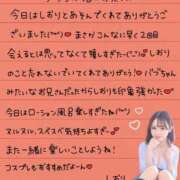 今日はしおりとあそんでくれてありがとうご
ざいました(^^) まさかこんなに早く2回目
会えるとは思ってなくて嬉しすぎた〜(^^) しおり
のこと忘れないでいてくれてありがとう❤ バブちゃん
みたいなお兄さんだったからしおりも印象強かった
今日はローション風呂楽しすぎたね(^^)♥
ヌルヌル、スイスイ気持ちよすぎ…❤
また一緒に楽しいことしようね!
コスプレもおすすめだよ〜♡
しおり